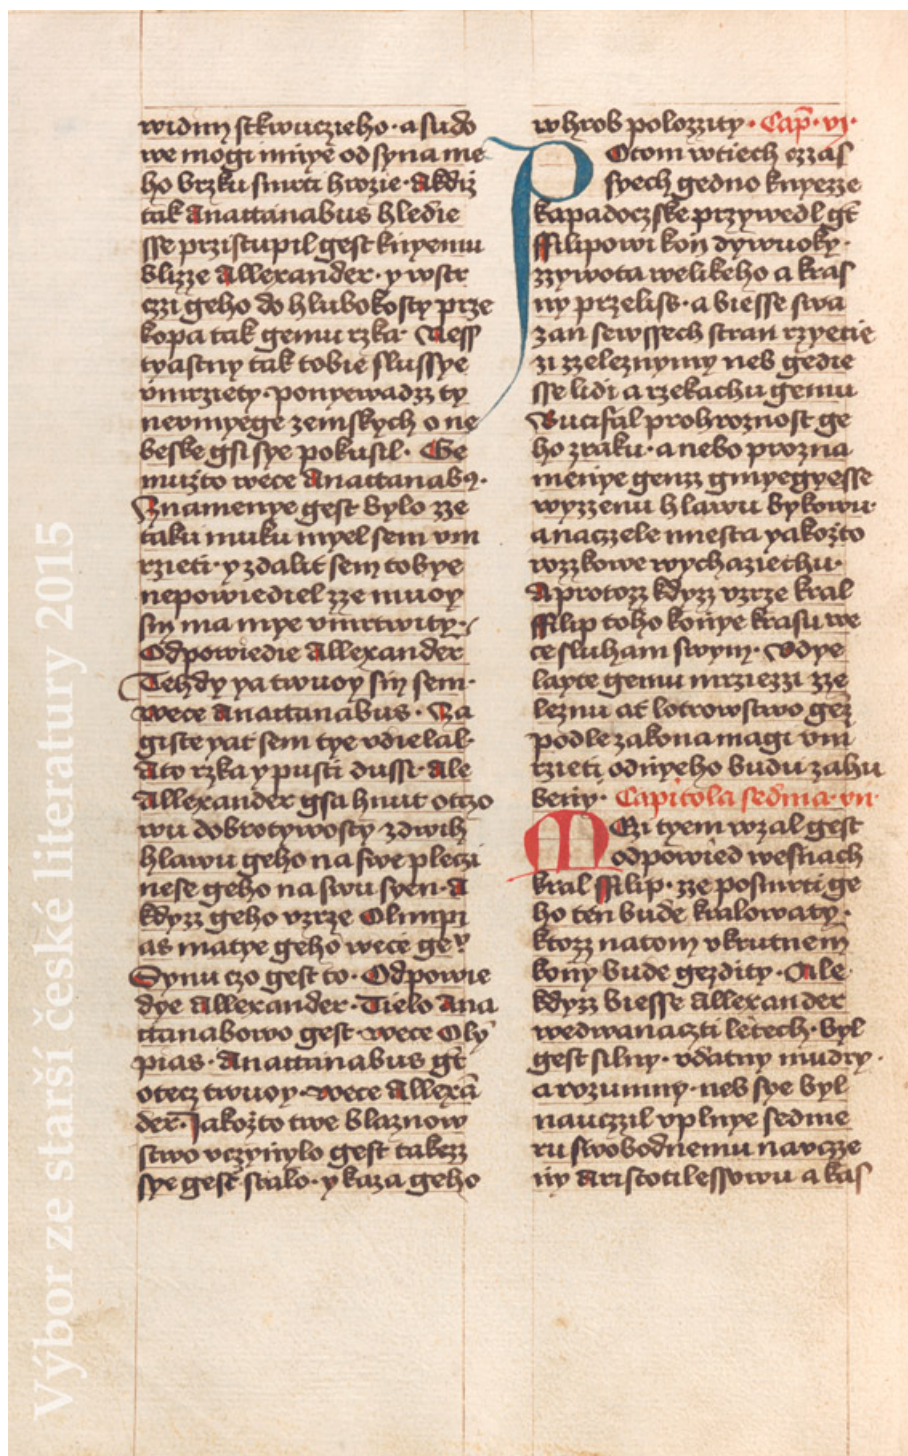 widim stkwuczieho · a sudo
we mogi mnye od syna me
ho brzku smrti hrozie · A kdiz
tak Anattanabus hledie
sse prziistupil gest knyemu
blizze Allexander · y wstr
czi geho do hlubokosty prze
kopa tak gemu rzka · Nessp
tyastny tak tobie slussye
vmrziety · ponyewadzz ty
nevmyege zemskych o ne
beske gsi sye pokusil · Ge
muzto wece Anattanab9 ·
Znamenye gest bylo zze
taku muku myel sem vm
rzieti · y zdalit sem tobye
nepowiediel zze muoy
syn ma mye vmrtwity ·
Odpowiedie Allexander
Tehdy ya twuoy syn sem ·
wece Anattanabus · Za
giste yat sem tye vdielal ·
A to rzka y pusti dussi · Ale
Allexander gsa hnut otczo
wu dobrotywosty zdwih
hlawu geho na swe pleczi
nese geho na swu syen · A
kdyzz geho vzrze Olimpi
as matye geho wece ge
Synu czo gest to · Odpowie
dye Allexander · Tielo Ana
ttanabowo gest · wece Oly
pias · Anattanabus gt
otecz twuoy · wece Allexā
der · Jakozto twe blaznow
stwo vczynylo gest takezz
sye gest stalo · y kaza geho
w hrob polozzity · Cap · vj ·
Potom wtiech czzas
syech gedno knyezze
kapadoczske przywedl gt
ffilipowi kon dywuoky ·
zzywota welikeho a kras
ny przelis · a biesse swa
zan sewssech stran rzyetie
zi zzeleznymy neb gedie
sse lidi a rzekachu gemu
Bucifal prohroznost ge
ho zraku · a nebo prozna
menye genzz gmyegyesse
wyzzenu hlawu bykowu ·
a naczele miesta yakozto
rozzkowe wychaziechu ·
A protozz kdyzz vzrze kral
ffilip toho konye krasu we
ce sluham swym · Vdye
layte gemu mrziezzi zze
leznu at lotrowstwo gez
podle zakona magi vm
rzieti od nyeho budu zahu
beny · Capitola sedma · vii ·
Mezi tyem wzal gest
odpowied wesnach
kral ffilip · zze posmrti ge
ho ten bude kralowaty ·
ktozz natom vkrutnem
kony bude gezdity · Ale
kdyzz biesse Allexander
wedwanaczti letech · byl
gest silny · vdatny mudry ·
a rozumny · neb sye byl
nauczzil vplnye sedme
ru swobodnemu navczze
ny Aristotilessowu a kas
Výbor ze starší české literatury 2015